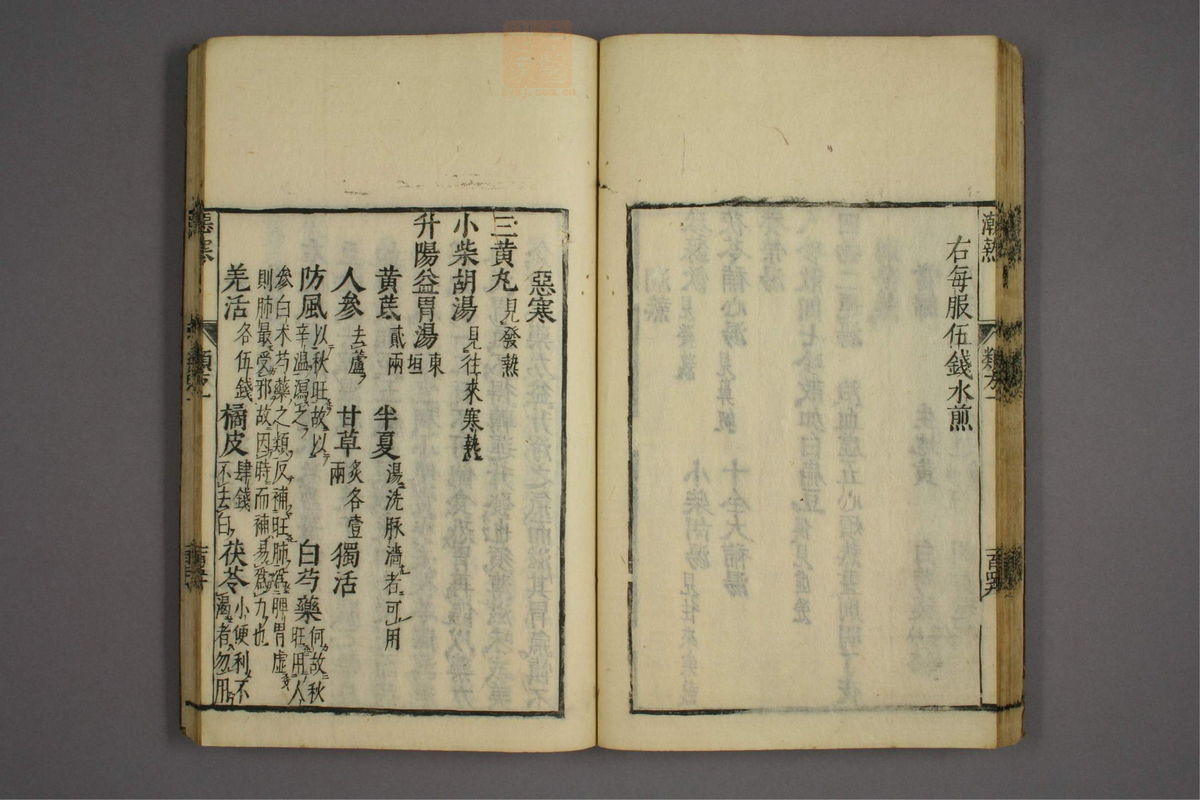 右每服伍錢水煎
潮熱
類方一
惡寒
三黄丸見發熱
小柴胡湯見往來寒熱
升陽益胃湯東垣
黄芪貳兩 半夏湯洗脉濇者可用
人參去蘆 甘草炙各壹兩 獨活
防風以秋旺故以辛温瀉之 白芍藥何故秋旺用人
參白术芍藥之類反補旺肺爲脾胃虛
則肺最受邪故因時而補易爲力也
羌活各伍錢 橘皮肆錢不去白 茯苓小便利不渴者勿用
惡寒
類方一